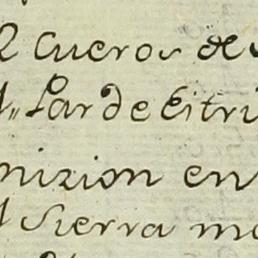 2 Cueros de
Par de Eitri
nizion en
Sierra ma